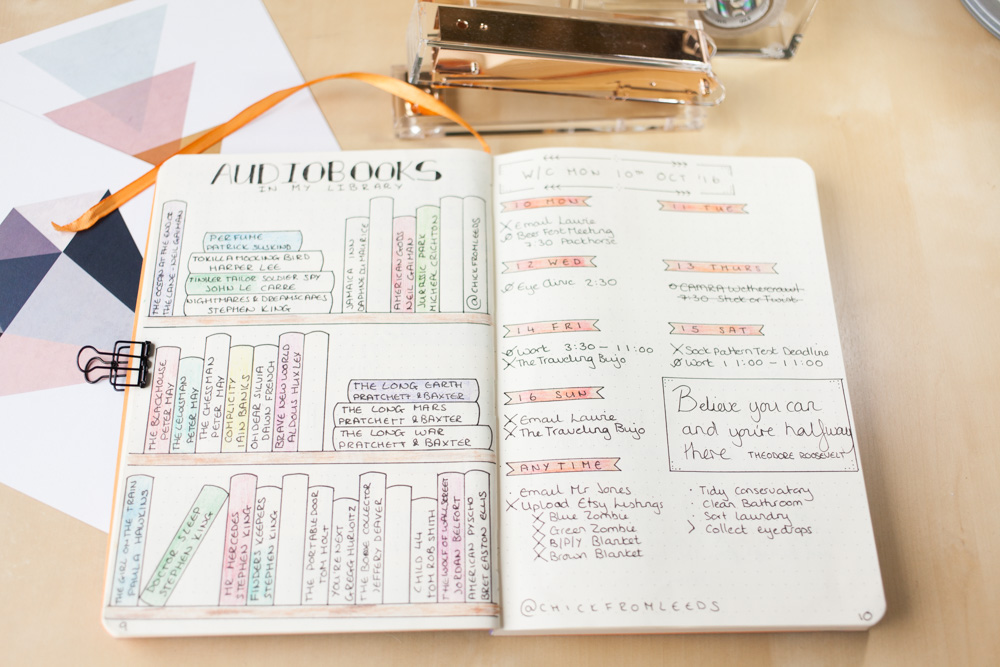 AUDIOBOOKS
IN MY LIBRARY
THE OCEAN AT THE END OF
THE LANE - NEIL GAIMAN
PERFUME
PATRICK SUSKIND
TO KILL A MOCKING BIRD
HARPER LEE
TINKER TAILOR SOLDIER SPY
JOHN LE CARRE
NIGHTMARES & DREAMSCAPES
STEPHEN KING
JAMAICA INN
DAPHNE DU MAURICE
AMERICAN GODS
NEIL GAIMAN
JURASSIC PARK
MICHEAL CRICHTON
@CHICKFROMLEEDS
THE BLACKHOUSE
PETER MAY
THE
PETER MAY
THE CHESSMAN
PETER MAY
COMPLICITY
IAIN BANKS
OH DEAR SILVIA
DAWN FRENCH
BRAVE NEW WORLD
ALDOUS HUXLEY
THE LONG EARTH
PRATCHETT & BAXTER
THE LONG MARS
PRATCHETT & BAXTER
THE LONG WAR
PRATCHETT & BAXTER
THE GIRL ON THE TRAIN
PAULA HAWKINS
DOCTOR SLEEP
STEPHEN KING
MR. MERCEDES
STEPHEN KING
FINDERS KEEPERS
STEPHEN KING
THE PORTABLE DOOR
TOM HOLT
YOU'RE NEXT
GREGG HURWITZ
THE BONE COLLECTOR
JEFFERY DEAVER
CHILD 44
TOM ROB SMITH
THE WOLF OF WALL STREET
JORDAN BELFORT
AMERICAN PYSCHO
BRET EASTON ELLIS
9
W/C MON 10TH OCT '16
10 MON
X Email Laurie
Beer Fest Meeting
7:30 Packhorse
11 TUE
12 WED
Eye clinic 2:30
13 THURS
CAMRA Wethercrawl
7:30 Stick or Twist
14 FRI
Work 3:30 - 11:00
X The Traveling Bujo
15 SAT
X Sock Pattern Test Deadline
Work 11:00 - 11:00
16 SUN
X Email Laurie
X The Traveling Bujo
Believe you can
and you're halfway
there THEODORE ROOSEVELT
ANYTIME
· Email Mr Jones
X Upload Etsy listings
X Blue Zombie
X Green Zombie
X B/P/Y Blanket
X Brown Blanket
· Tidy Conservatory
· Clean Bathroom
· Sort laundry
> Collect eyedrops
@CHICKFROMLEEDS
10